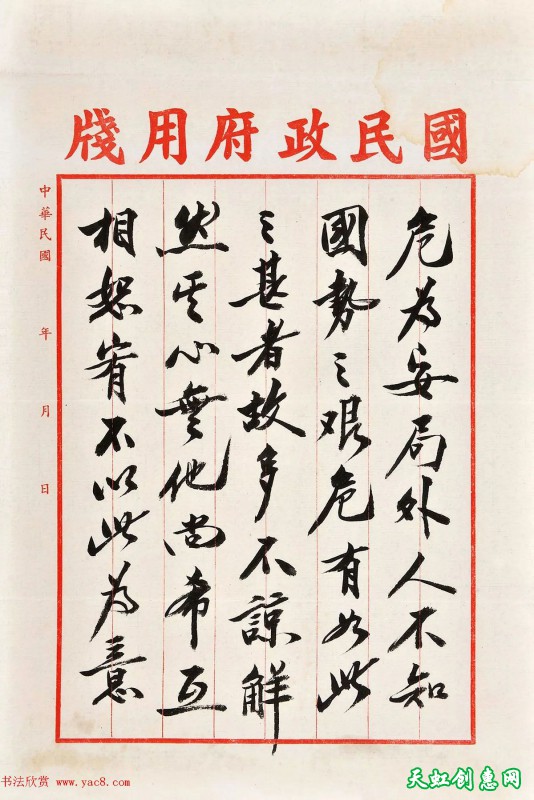 國民政府用牋
危為安局外人不知
國勢之艰危有如此
之甚者故多不諒解
然其心無他尚希互
相恕宥不以此為意
中華民國 年 月 日
书法欣赏 www.yac8.com
天虹创惠网